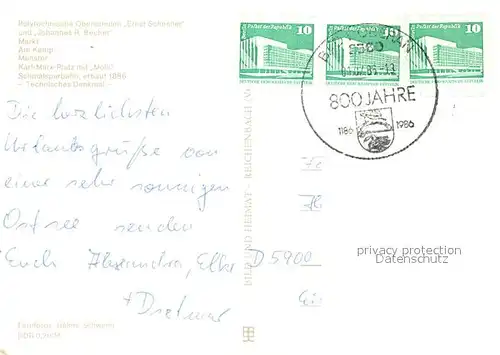 Polytechnische Oberschulen „Ernst Schneller"
und „Johannes R. Becher"
Markt
Am Kamp
Karl-Marx-Platz mit „Molli"
Schmalspurbahn, erbaut 1886
– Technisches Denkmal –
Die herzlichsten
Urlaubsgrüße von
einer sehr sonnigen
Ostsee senden
Euch Alexandra, Elke
+ Dietmar
BILD UND HEIMAT · REICHENBACH (V)
Berlin, Palast der Republik
10
DEUTSCHE DEMOKRATISCHE REPUBLIK
10
DEUTSCHE DEMOKRATISCHE REPUBLIK
Berlin, Palast der Republik
10
DEUTSCHE DEMOKRATISCHE REPUBLIK
800 JAHRE
1186 1986
D 5900
privacy protection
Datenschutz